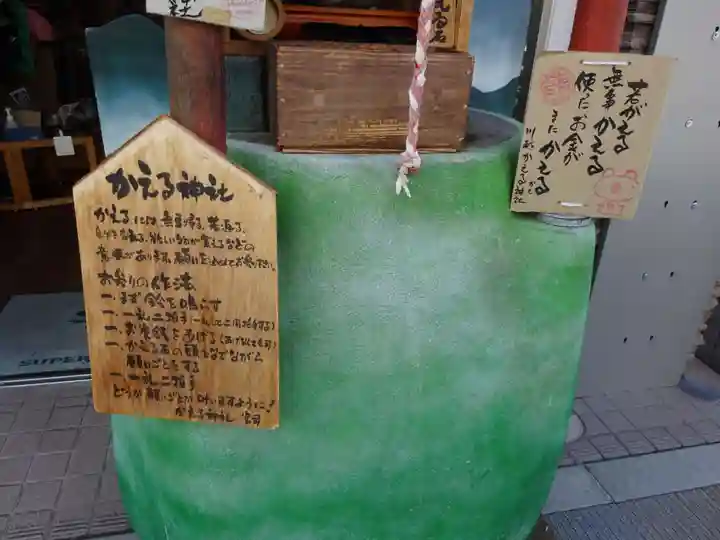 かえる神社
かえるには、無事帰る、若返る、
意味があります。願いを込めてお参り下さい。
お参りの作法
一、まず鈴を鳴らす
一、一礼二拍手
一、お賽銭をあげる
一、かえる石の頭をなでながら
願いごとをする
一、一礼二拍手
どうか願いごとが叶いますように!
かえる神社 宮司
若がえる
無事かえる
使たお金が
またかえる
川越かえる神社
SUPER